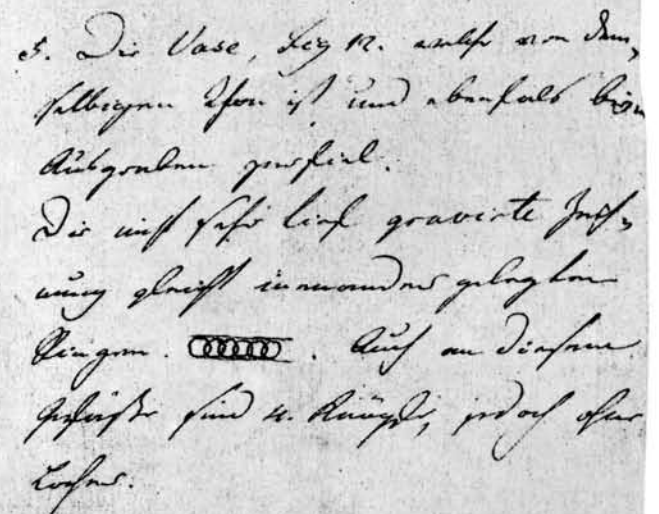 5. Die Vase, Fig 12. welche von dem¬
selbigen Thon ist und ebenfals beim
Ausgraben zerfiel.
Die nicht sehr tief gravirte Zeich¬
nung gleicht ineinander gelegten
Ringen. . Auch an diesem
Gefäße sind 4. Knöpfe, jedoch ohne
Löcher.